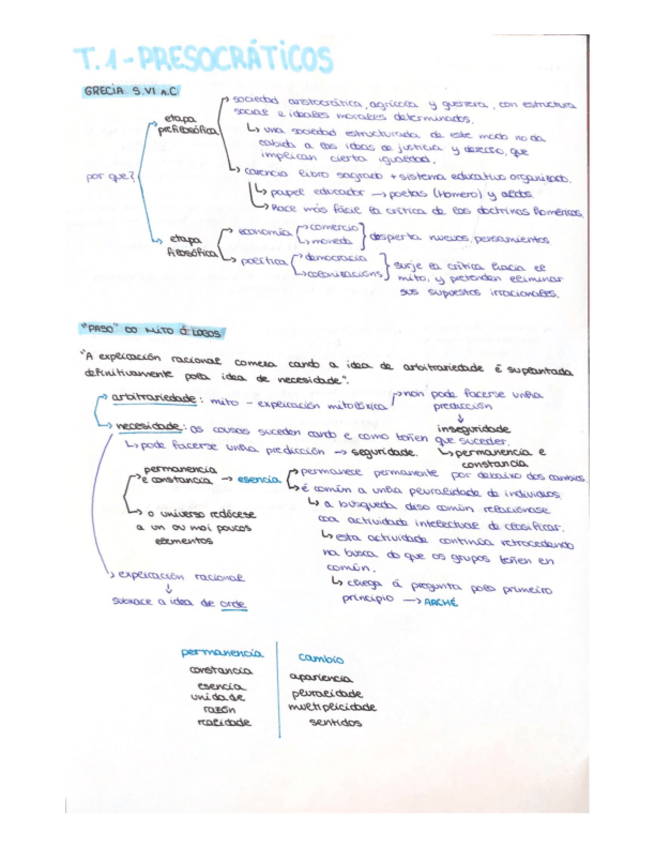 T.1-PRESOCRÁTICOS
GRECIA S.VI A.C
por que?
etapa
prefilosófica
sociedad aristocrática, agrícola y guerrera, con estructura
social e ideales morales determinados.
una sociedad estructurada de este modo no da
cabida a las ideas de justicia y derecho, que
implican cierta igualdad.
carencia libro sagrado + sistema educativo organizado.
papel educador → poetas (Homero) y
Hace más fácil la crítica de las doctrinas homéricas.
etapa
filosófica
economía
comercio
moneda
despierta nuevos pensamientos
política
democracia
surje la crítica hacia el
mito, y pretenden eliminar
sus supuestos irracionales.
"PASO" DO MITO Ó LOGOS
"A explicación racional comeza cando a idea de arbitrariedade é suplantada
definitivamente pola idea de necesidade".
arbitrariedade: mito - explicación mitolóxica
non pode facerse unha
predicción
↓
inseguridade
necesidade: as cousas suceden cando e como teñen que suceder.
pode facerse unha predicción → seguridade.
permanencia e
constancia
permanencia
e constancia → esencia
permanece permanente por debaixo dos cambios
é común a unha pluralidade de individuos
a búsqueda diso común relaciónase
coa actividade intelectual de clasificar.
o universo redúcese
a un ou moi poucos
elementos
esta actividade continúa retrocedendo
na busca do que os grupos teñen en
común.
chega á pregunta polo primeiro
principio → ARCHÉ
explicación racional
↓
subxace a idea de orde
permanencia
constancia
esencia
unidade
razón
realidade
cambio
apariencia
pluralidade
multiplicidade
sentidos